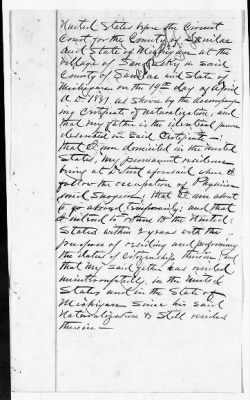 United States before the Circuit
Court for the County of Sanilac
and State of Michigan at the
village of Sandusky in said
County of Sanilac and State of
Michigan on the 19th day of April
A.D. 1881, as shown by the accompany
ing Certificate of Naturalization, and
that my father is the identical person
described in said Certificate
that I am domiciled in the United
States, my permanent residence
being at Detroit aforesaid where I
follow the occupation of Physician
and Surgeon, that I am about
to go abroad temporarily and that
I intend to return to the United
States within 2 years with the
purpose of residing and performing
the duties of citizenship therein and
that my said father has resided
uninterruptedly, in the United
States and in the State of
Michigan since his said
Naturalization & still resides
therein —